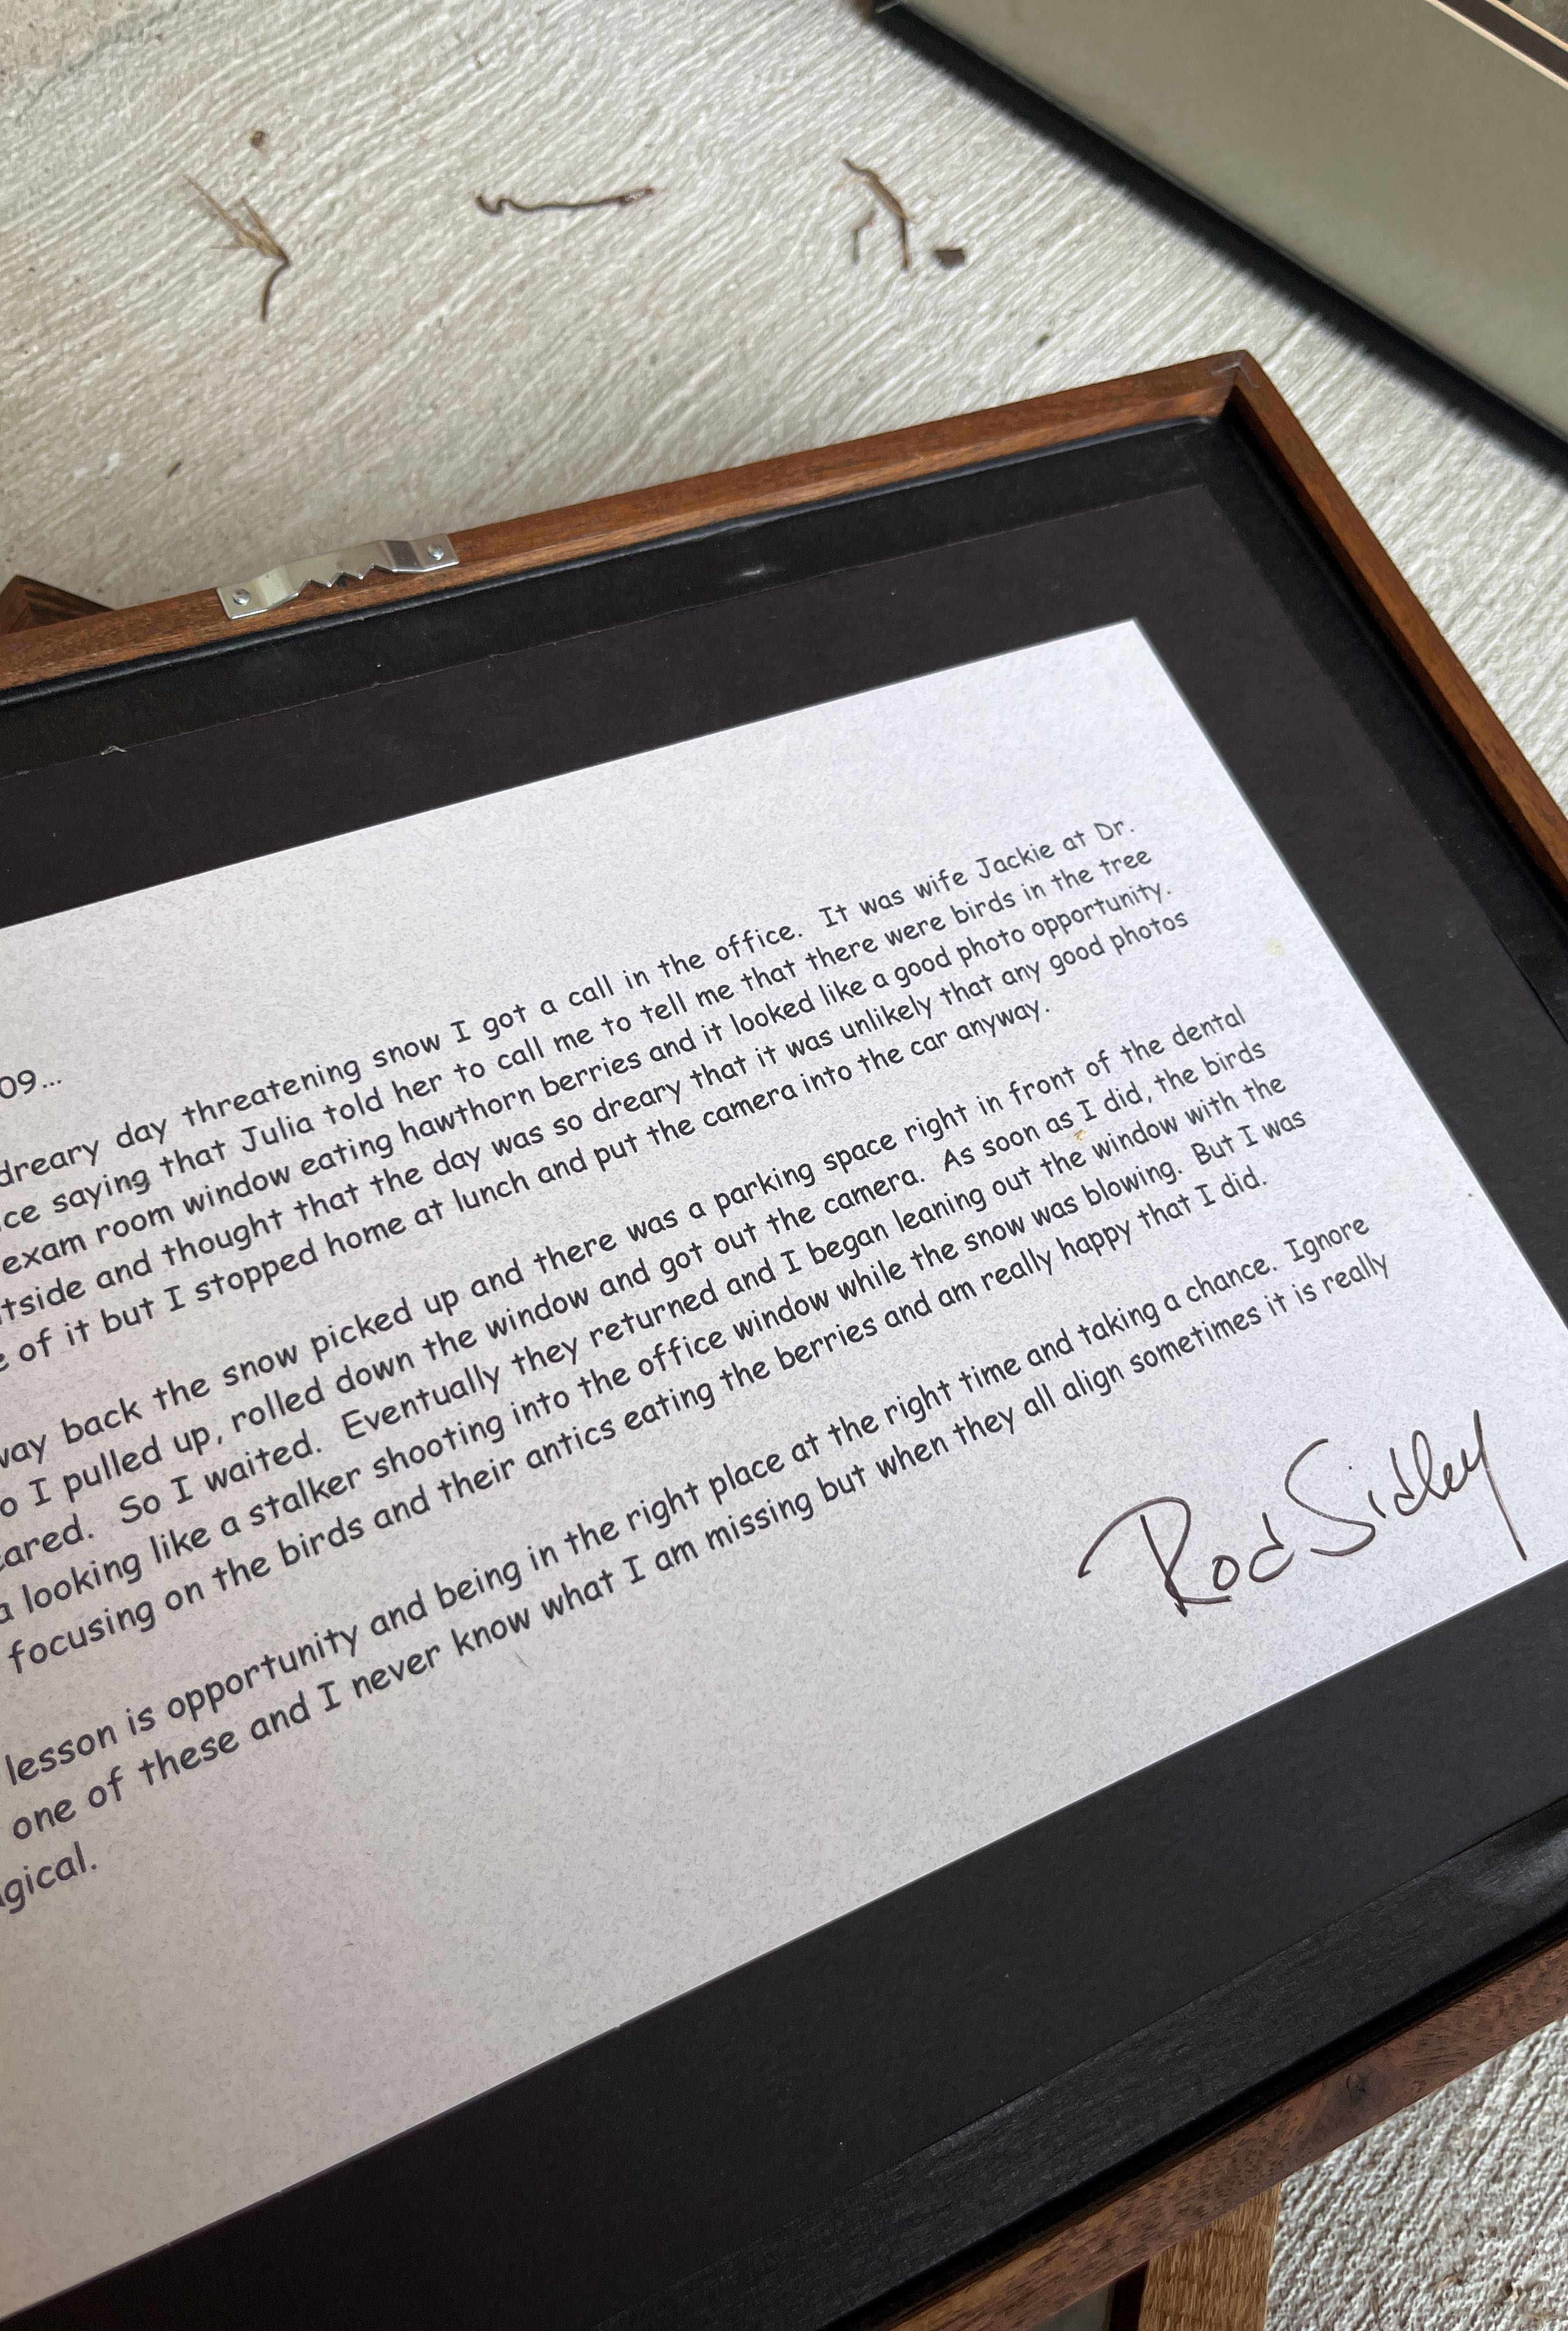 09...
dreary day threatening snow I got a call in the office. It was wife Jackie at Dr.
ce saying that Julia told her to call me to tell me that there were birds in the tree
exam room window eating hawthorn berries and it looked like a good photo opportunity.
tside and thought that the day was so dreary that it was unlikely that any good photos
e of it but I stopped home at lunch and put the camera into the car anyway.
way back the snow picked up and there was a parking space right in front of the dental
o I pulled up, rolled down the window and got out the camera. As soon as I did, the birds
ared. So I waited. Eventually they returned and I began leaning out the window with the
a looking like a stalker shooting into the office window while the snow was blowing. But I was
focusing on the birds and their antics eating the berries and am really happy that I did.
lesson is opportunity and being in the right place at the right time and taking a chance. Ignore
one of these and I never know what I am missing but when they all align sometimes it is really
gical.
Rod Sidley